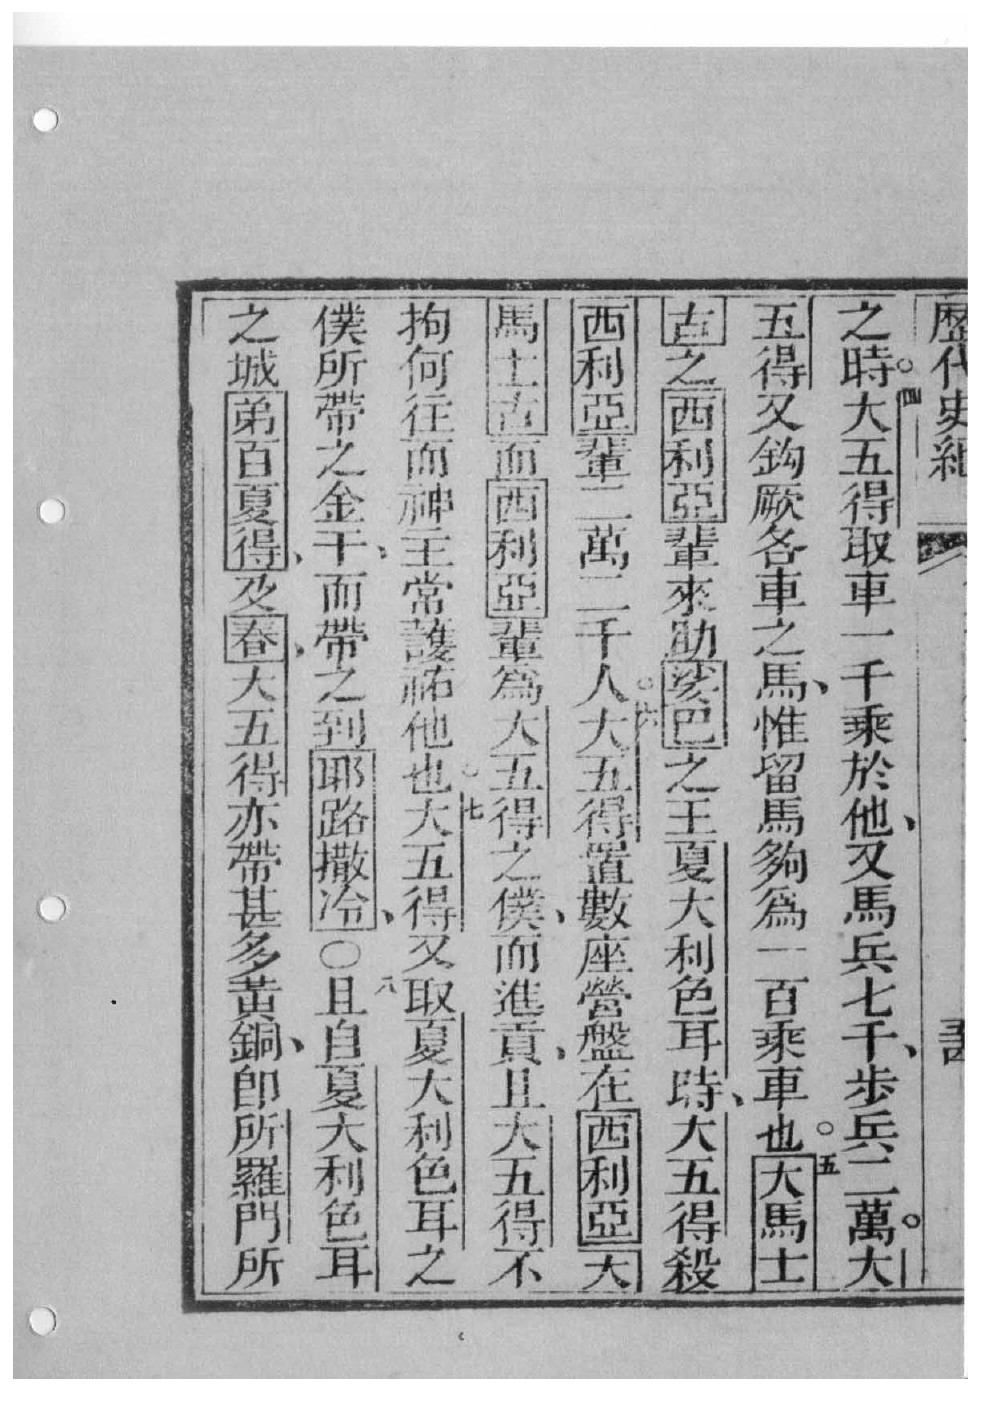 歷代史紀
之時。四大五得取車一千乘於他、又馬兵七千、步兵二萬。大
五得又鈎厥各車之馬、惟留馬夠爲一百乘車也。五大馬士
古之西利亞輩來助娑巴之王夏大利色耳時、大五得殺
西利亞輩二萬二千人。六大五得置數座營盤在西利亞大
馬士古而西利亞輩爲大五得之僕、而進貢、且大五得不
拘何往而神主常護祐他也。七大五得又取夏大利色耳之
僕所帶之金干、而帶之到耶路撒冷、〇八且自夏大利色耳
之城弟百夏得、及春、大五得亦帶甚多黃銅、卽所羅門所